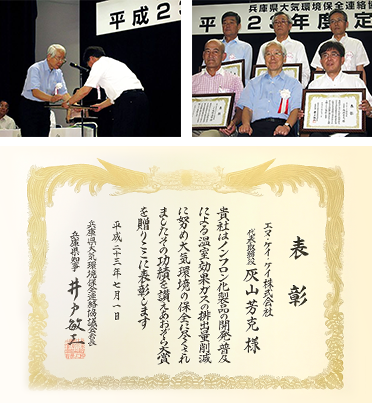 平成２３
兵庫県大気環境保全連絡協
年度定
表彰
エヌ・ケイ・ケイ株式会社
代表取締役 灰山芳克 様
貴社はノンフロン化製品の開発・普及
による温室効果ガスの排出量削減
に努め大気環境の保全に尽くされ
ましたその功績を讃えあおぞら大賞
を贈りここに表彰します
平成二十三年七月一日
兵庫県大気環境保全連絡協議会会長
兵庫県知事 井戸敏三